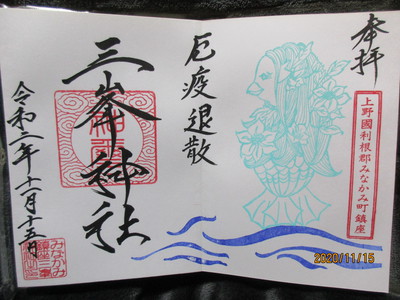 奉拝
上野國利根郡みなかみ町鎮座
厄疫退散
三峯神社
令和二年十一月十五日
2020/11/15